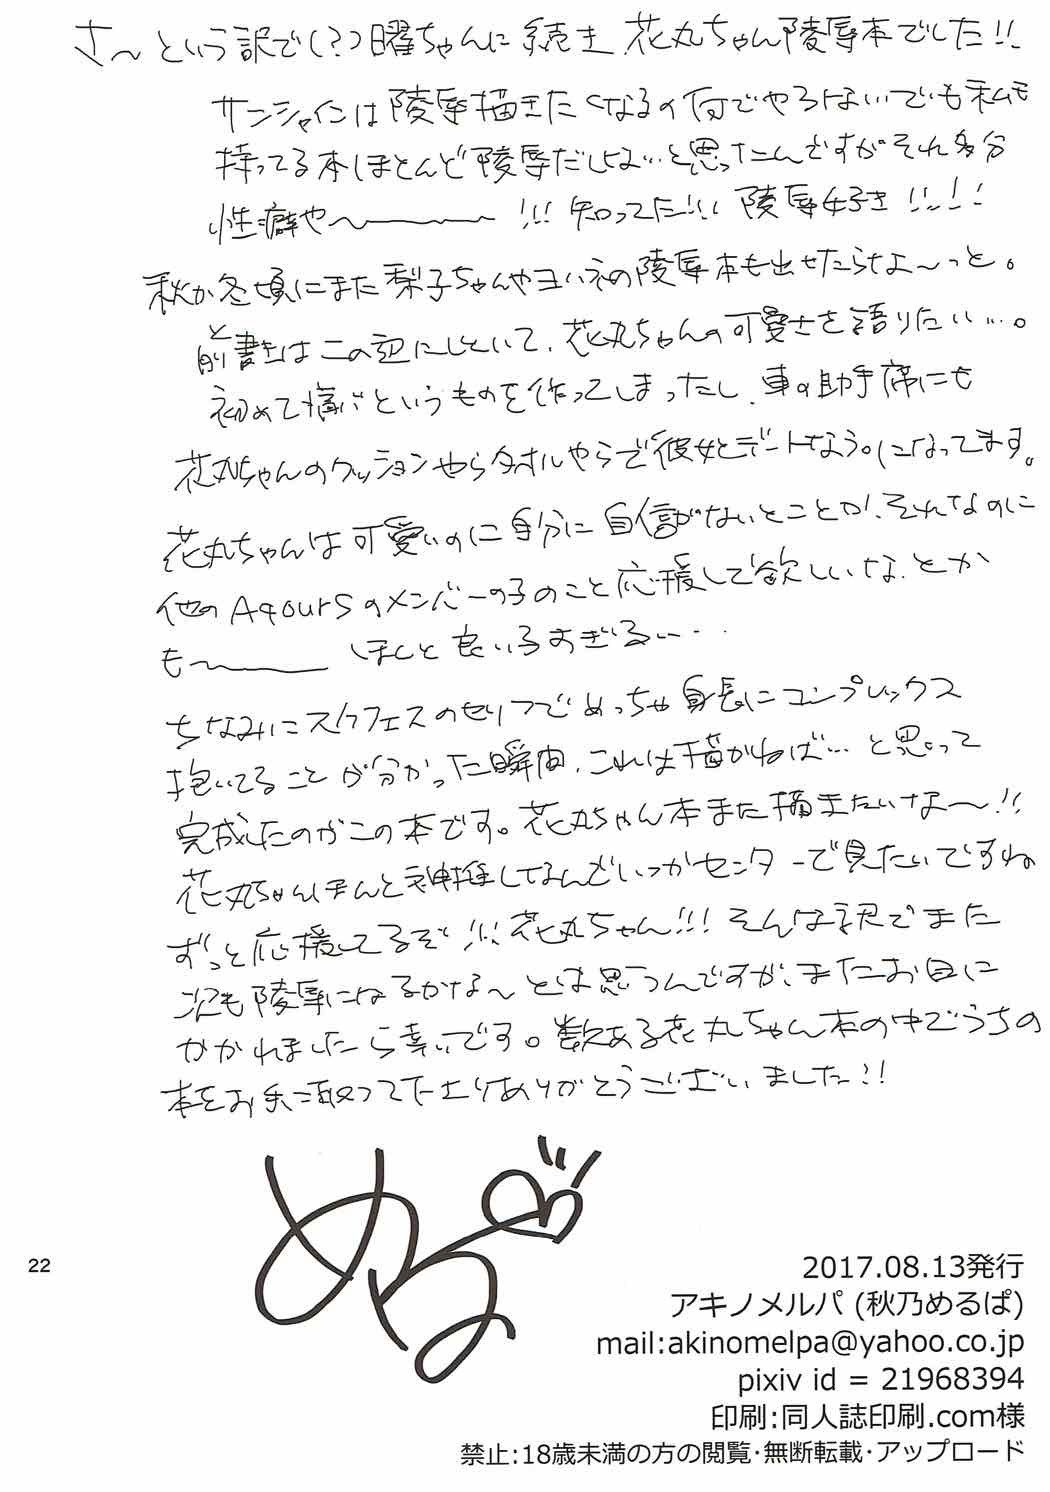 さ～という訳で(?)曜ちゃんに続き花丸ちゃん陵辱本でした!!
サンシャインは陵辱描きたくなるの何でやろ ないでも私も
持ってる本ほとんど陵辱だしな…と思ったんですがそれ多分
性癖や～!!! 知ってた!!! 陵辱好き!!!!
秋か冬頃にまた梨子ちゃんやヨハネの陵辱本も出せたらな～っと。
と前書きはこの辺にしといて、花丸ちゃんの可愛さを語りたい…。
初めて痛バというものを作ってしまったし、車の助手席にも
花丸ちゃんのクッションやらタオルやらで彼女とデートなう。になってます。
花丸ちゃんは可愛いのに自分に自信がないとことか、それなのに
他のAqoursのメンバーの子のこと応援して欲しいな、とか
も～ ほんと良い子すぎる…
ちなみにスクフェスのセリフでめっちゃ身長にコンプレックス
抱いてることが分かった瞬間、これは描かねば…と思って
完成したのがこの本です。花丸ちゃん本また描きたいな～!!
花丸ちゃんほんと神推してるんでいつかセンターで見たいですね
ずっと応援してるぞ!!! 花丸ちゃん!!! そんな訳でまた
次も陵辱になるかな～とは思うんですが、またお目に
かかれましたら幸いです。数ある花丸ちゃん本の中でうちの
本をお手に取って下さりありがとうございました!!
める
22
2017.08.13発行
アキノメルパ (秋乃めるぱ)
mail:akinomelpa@yahoo.co.jp
pixiv id = 21968394
印刷:同人誌印刷.com様
禁止:18歳未満の方の閲覧･無断転載･アップロード